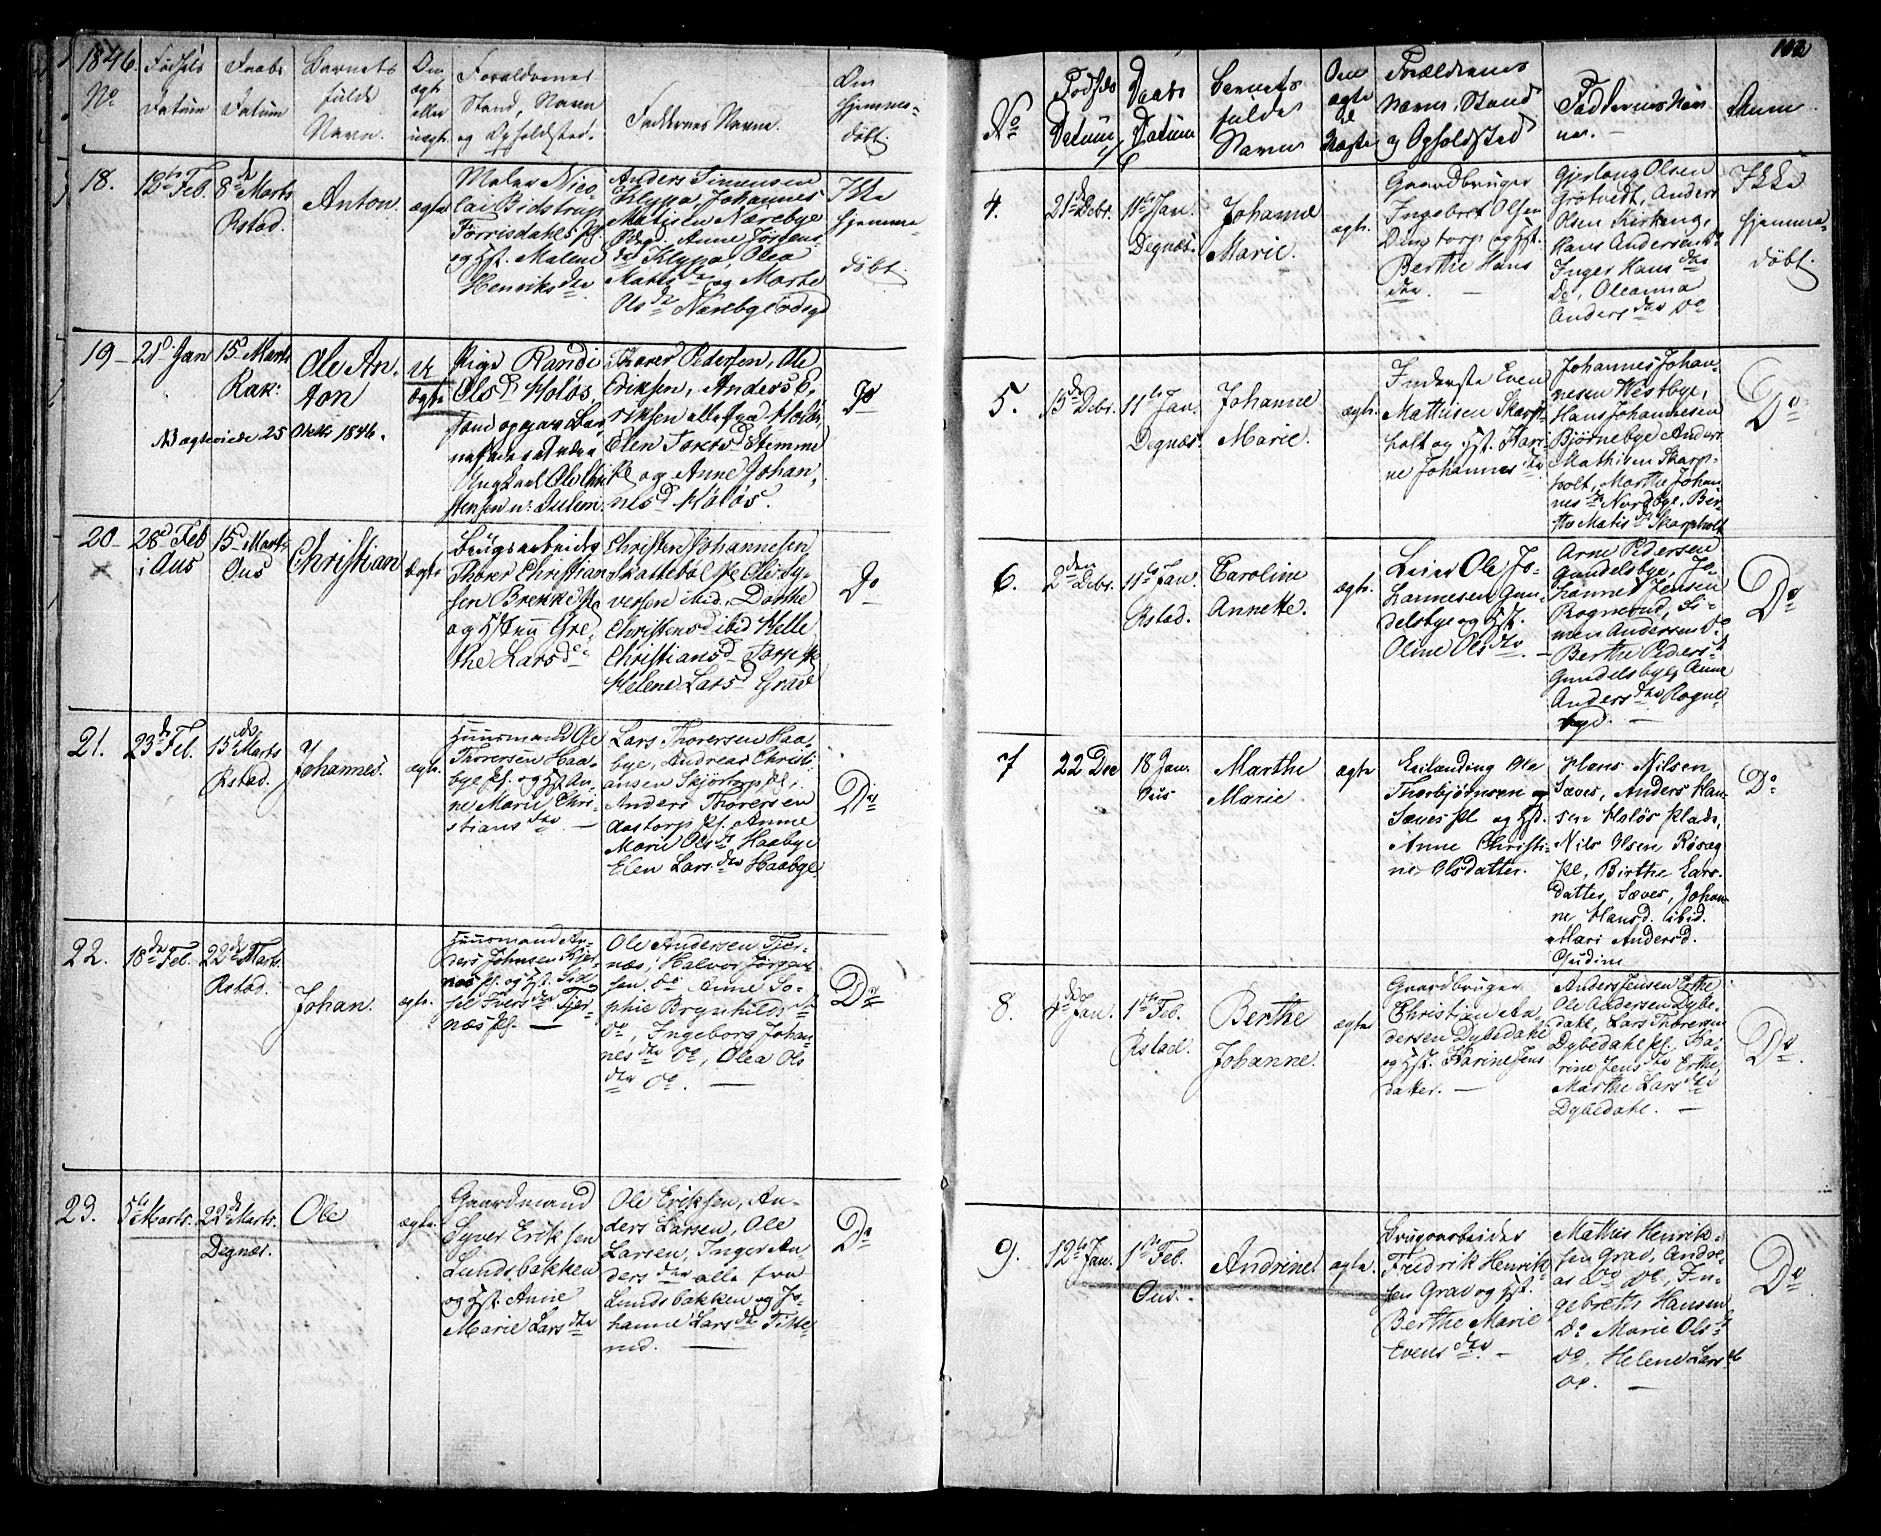 1846.
No
Fødsels
Datum
Daabs
Datum
Barnets
fulde
Navn.
Om
ægte
eller
uægte
Forældrenes
Stand, Navn
og Opholdsted.
Faddernes Navne.
Om
hjemme-
døbt
18.
12te Feb.
8de Marts
Rstad.
Anton.
ægte
Maler Nico-
lai Bidstrup
Torrisdahls pl.
og Hst. Malene
Henriksdtr
Anders Simensen
Klyppa, Johannes
Matisen Nærebye
Ødegd, Anne Jostens
dtr Klyppa, Olea
Matisdtr og Marte
Olsdtr Nærebye ødegd
Ikke
hjemme
døbt.
19
21d Jan
15d Marts
Rak:
Ole An-
ton
U
ægte
Pige Randi
Olsd Holøs,
Ungkarl Ole Chri
stensen
Thorer Pedersen, Ole
Eriksen, Anders E-
riksen alle fra Holøs,
Elen
pl og Anne Johan,
nesd Holøs.
Do
NB ægteviede 25 Oktbr 1846.
20
28d Feb
i Aus
15d Marts
Ous
Christian
ægte
Brugsarbeider
Thorer Christian
sen Brekke pl
og Hstru Gre,
the Larsdtr
Christen Johannesen
Skattebøl pl Ole Sy-
versen ibid, Dorthe
Christensd ibid Helle
Christiansd Torp pl
Helene Larsd Grav
Do
21.
23d Feb.
15de Marts
Rstad.
Johannes.
ægte.
Huusmand Ole
Thorersen Haa-
bye pl. og Hst An-
ne Marie Chri-
stiansdtr. —
Lars Thorersen Haa-
bye, Andreas Christi-
ansen Skjørtorp pl,
Anders Thorersen
Aastorp pl. Anne
Marie Olsdtr Haabye
Elen Larsdtr Haabye.
Do
22.
18de Feb.
22de Marts.
Rstad.
Johan.
ægte.
Huusmand An-
ders Johnsen Tjer-
næs pl. og Hst. Sid-
sel Iversdtr Tjer-
næs pl. —
Ole Andersen Tjer-
næs, Halvor Jørgen-
sen do Anne So-
phie Brynhildsdtr
do, Ingeborg Johan-
nesdtr do, Olea Ols
dtr do. —
Do
23.
5te Marts.
22de Marts.
Degnæs.
Ole
ægte.
Gaardmand
Syver Eriksen
Lundsbakken
og Hst. Anne
Marie Larsdtr
Ole Eriksen, An-
ders Larsen, Ole
Larsen, Inger An-
dersdtr alle fra
Lundsbakken og Jo-
hanne Larsdtr Titte-
rud. —
Do
102
No
Fødsels
Datum
Daabs
Datum
Barnets
fulde
Navn
Om
ægte
el
Uægte
Forældrenes
Navn, Stand
og Opholdsted
Faddernes Nav
ne. —
Anm
4.
21de Debr.
11te Jan.
Degnæs.
Johanne
Marie.
ægte.
Gaardbruger
Ingebret Olsen
Dingtorp og Hst.
Berthe Hans
dtr. —
Gjerlaug Olsen
Grøtvedt, Anders
Olsen Kirkeng,
Hans Andersen do
Inger Hansdtr
do, Oleanna
Andersdtr do
Ikke
hjemme-
døbt.
5.
13de Debr.
11te Jan.
Degnæs.
Johanne
Marie.
ægte.
Inderste Even
Mathisen Skarp-
holt og Hst. Kari-
ne Johannesdtr
Johannes Johan-
nesen Westbye,
Hans Johannesen
Bjørnebye Anders
Mathisen Skarp-
holt, Marthe Johan
nesdtr Nordbye, Ber-
the Matisdtr Skarpholt
Do
6.
2den Debr.
11te Jan.
Rstad.
Caroline
Annette.
ægte.
Leier Ole Jo-
hannesen Gun-
delsbye og Hst.
Oline Olsdtr. —
Arne Pedersen
Gundelsbye, Jo-
hannes Jensen
Rognerud, Si-
men Andersen do
Berthe Pedersdtr
Gundelsbye, Anne
Andersdtr Rogne-
byd. —
Do
7
22 Dec
18 Jan.
Ous
Marthe
Marie
ægte
Eilænding Ole
Thorbjørnsen og
Sæves pl og Hst.
Anne Christi-
ne Olsdatter.
Hans Nilsen
Sæves, Anders Han
sen Holøs plads,
Nils Olsen Røsæg
pl, Birthe Lars
datter Sæves, Johan
ne Hansd. ibid.
Mari Andersd.
Gudim
Do
8.
4de Jan.
1ste Feb.
Rstad.
Berthe
Johanne.
ægte
Gaardbruger
Christian An-
dersen Dybedahl
og Hst. Karine Jens
datter. —
Anders Jensen Erthe
Ole Andersen Dybe-
dahl, Lars Thorersen
Dybedahl pl. Ka-
rine Jensdtr Erthe,
Marthe Larsdtr
Dybedahl. —
Do.
9.
12te Jan.
1ste Feb.
Ous.
Andrine.
ægte.
Brugsarbeider
Fredrik Henrik-
sen Grav og Hst.
Berthe Marie
Evensdtr. —
Mathis Henrik-
sen Grav, Andre-
as do do, In-
gebreth Hansen
do Marie Olsdtr
do, Helene Larsdtr
do. —
Do